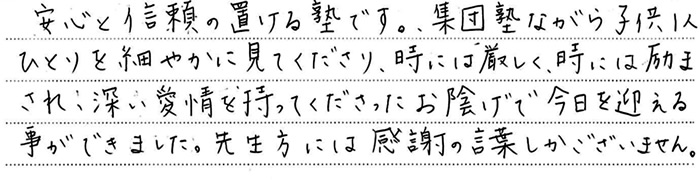 安心と信頼の置ける塾です。、集団塾ながら子供1人
ひとりを細やかに見てくださり、時には厳しく、時には励ま
され、深い愛情を持ってくださったお陰げで今日を迎える
事ができました。先生方には感謝の言葉しかございません。